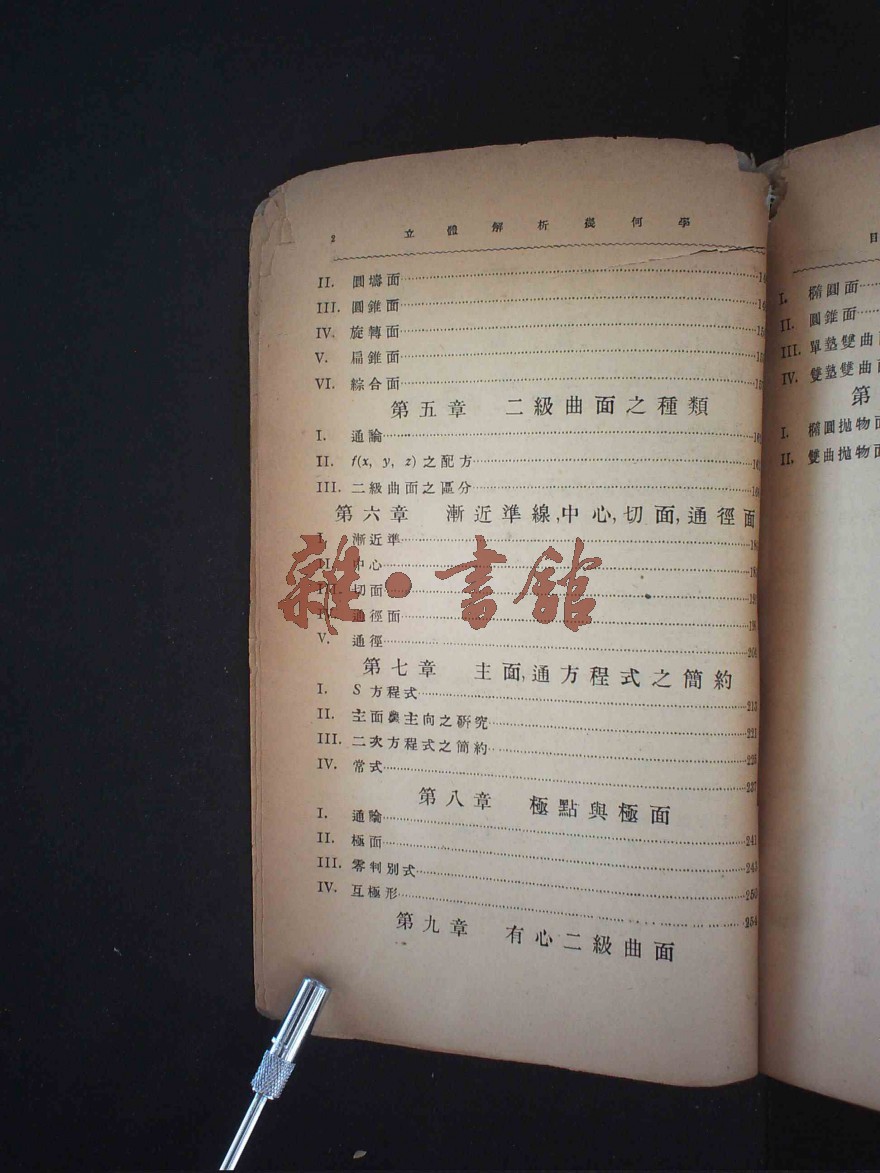 2 立體解析幾何學
II. 圓壔面
III. 圓錐面
IV. 旋轉面
V. 扁錐面
VI. 綜合面
第五章 二級曲面之種類
I. 通論
II. f(x, y, z) 之配方
III. 二級曲面之區分
第六章 漸近準線,中心,切面,通徑面
I. 漸近準
II. 中心
III. 切面
IV. 通徑面
V. 通徑
雜·書館
第七章 主面,通方程式之簡約
I. S 方程式 213
II. 主面與主向之研究 221
III. 二次方程式之簡約
IV. 常式 237
第八章 極點與極面
I. 通論 241
II. 極面 243
III. 零判別式 250
IV. 互極形 254
第九章 有心二級曲面
目
I. 橢圓面
II. 圓錐面
III. 單墊雙曲
IV. 雙墊雙曲
第
I. 橢圓拋物
II. 雙曲拋物